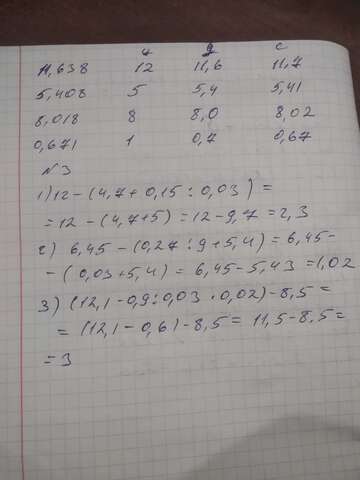 ч g c
11,638 12 11,6 11,7
5,408 5 5,4 5,41
8,018 8 8,0 8,02
0,671 1 0,7 0,67
N3
1) 12 - (4,7 + 0,15 : 0,03) =
= 12 - (4,7+5) = 12 - 9,7 = 2,3
2) 6,45 - (0,27 : 9 + 5,4) = 6,45 -
- (0,03 + 5,4) = 6,45 - 5,43 = 1,02
3) (12,1 - 0,9 : 0,03 · 0,02) - 8,5 =
= (12,1 - 0,6) - 8,5 = 11,5 - 8,5 =
= 3